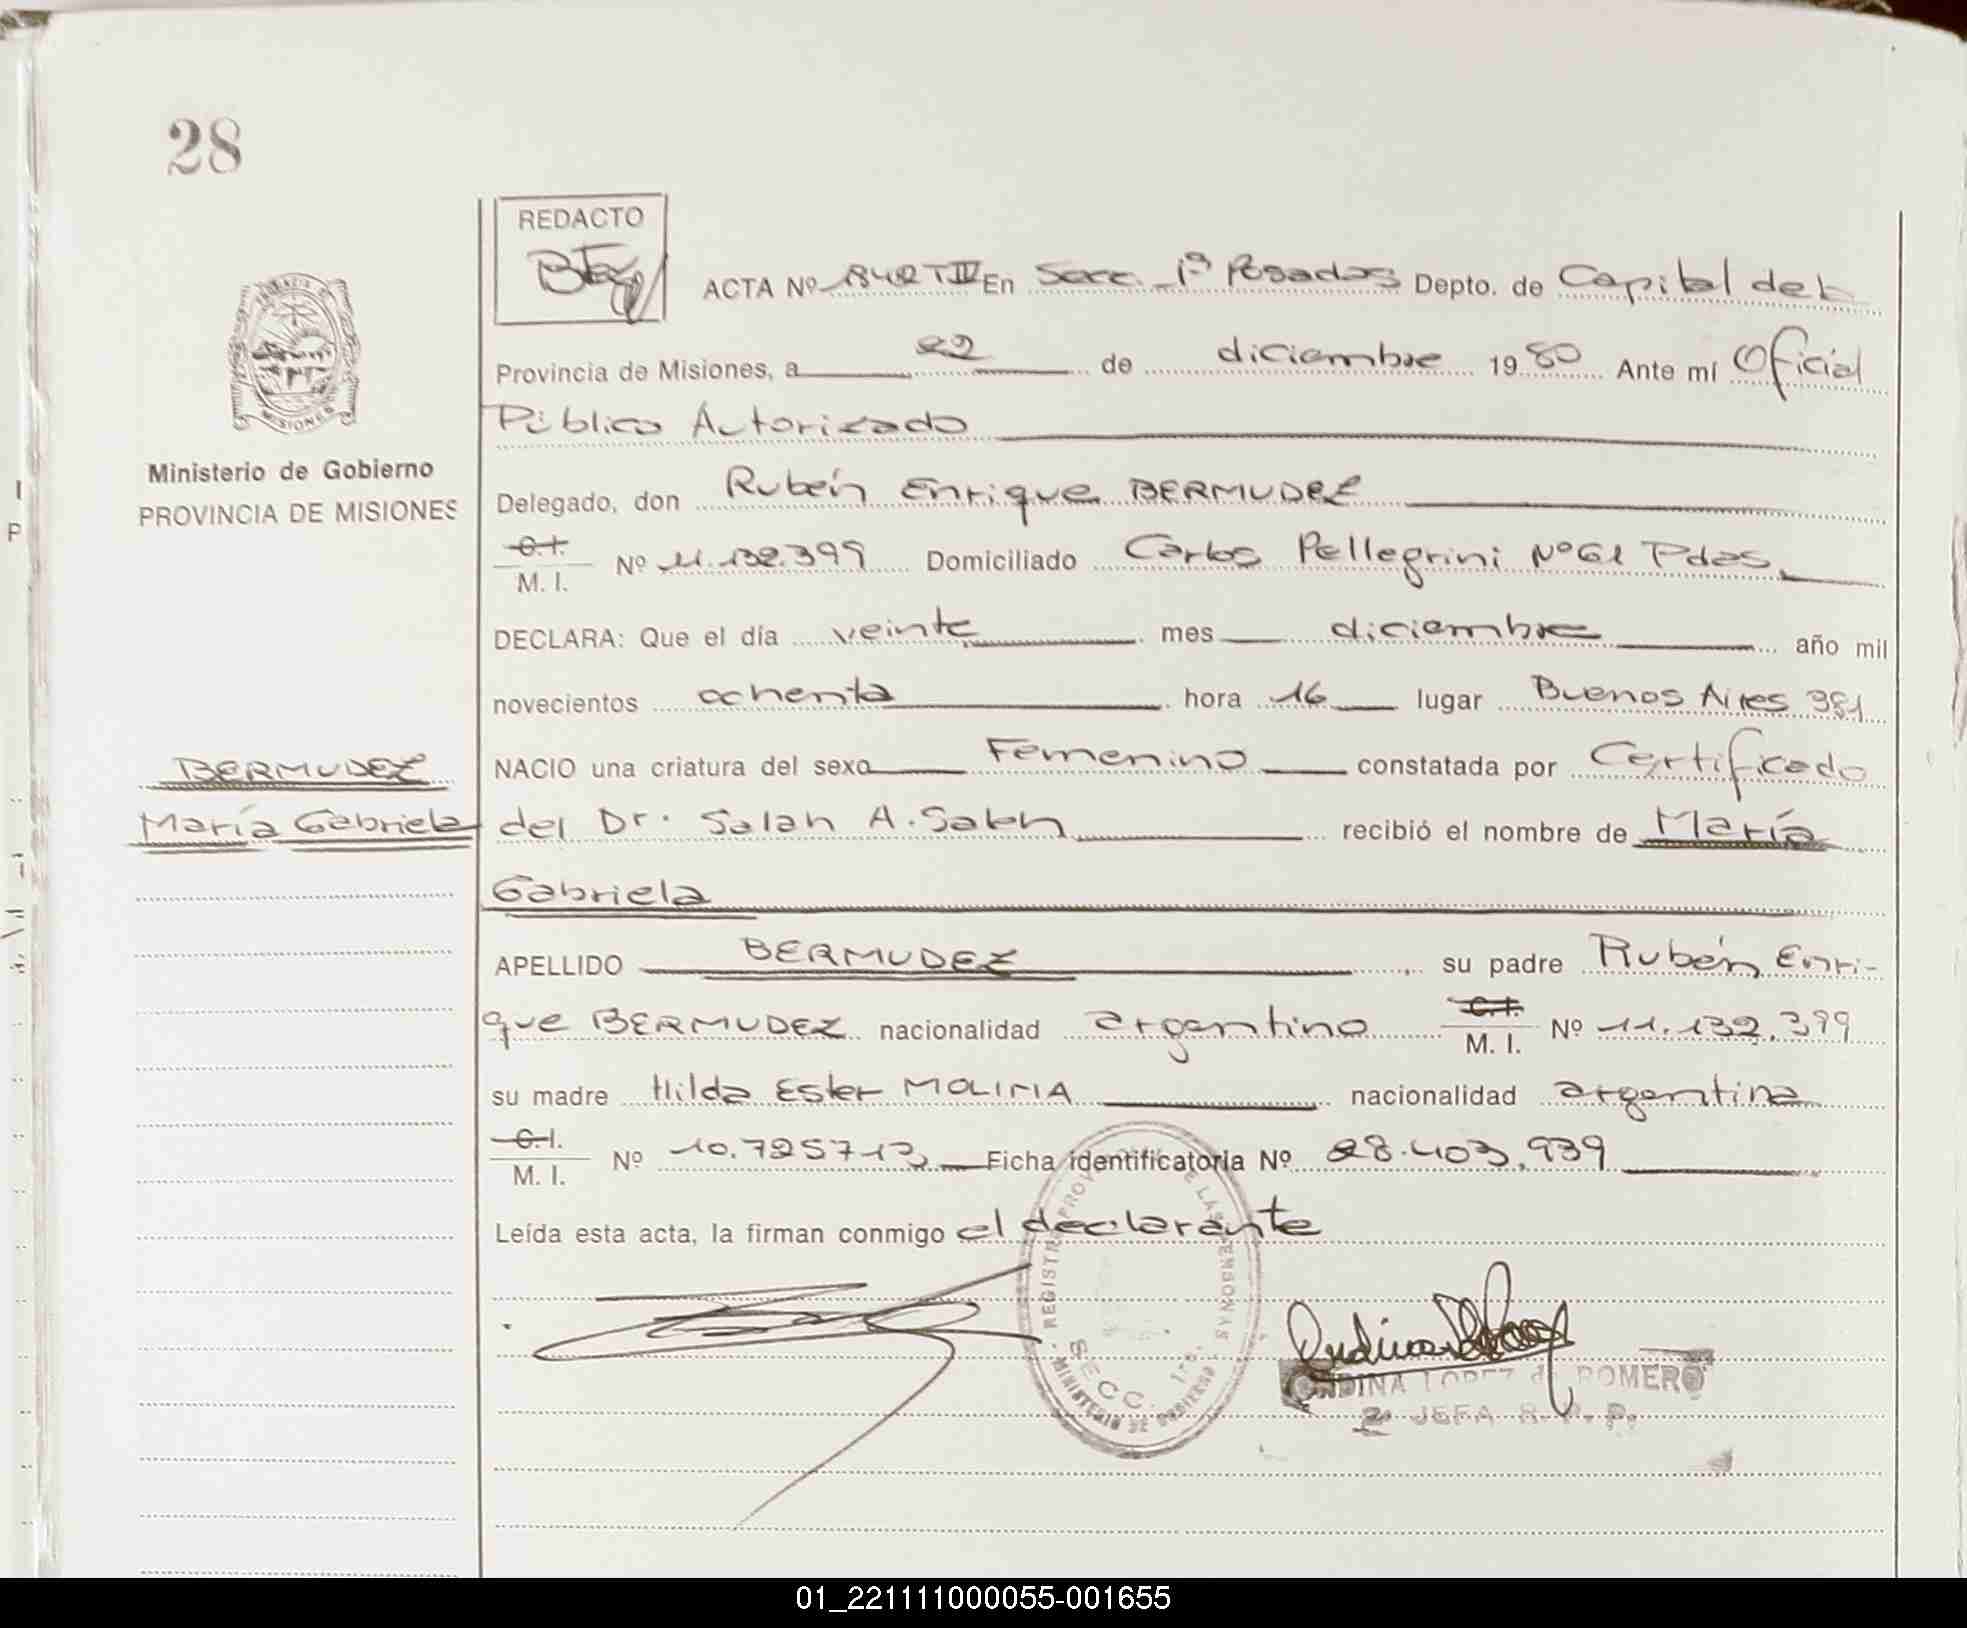 28
REDACTO
ACTA Nº 1842 T III En Secc. 1ª Posadas Depto. de Capital de la
Provincia de Misiones, a 22 de diciembre 1980 Ante mí Oficial
Público Autorizado
Ministerio de Gobierno
PROVINCIA DE MISIONES
Delegado, don Rubén Enrique BERMUDEZ
C.I.
M. I. Nº 11.132.399 Domiciliado Carlos Pellegrini Nº 61 Pdas.
DECLARA: Que el día veinte mes diciembre año mil
novecientos ochenta hora 16 lugar Buenos Aires 381
BERMUDEZ
María Gabriela
NACIO una criatura del sexo Femenino constatada por Certificado
del Dr. Salah A. Saleh recibió el nombre de María
Gabriela
APELLIDO BERMUDEZ su padre Rubén Enri-
que BERMUDEZ nacionalidad argentino C.I.
M. I. Nº 11.132.399
su madre Hilda Ester MOLINA nacionalidad argentina
C.I.
M. I. Nº 10.725713 Ficha identificatoria Nº 28.403.939
Leída esta acta, la firman conmigo el declarante
REGISTRO PROVINCIAL DE LAS PERSONAS
SECC. 1ra.
MINISTERIO DE GOBIERNO
ONDINA LOPEZ de ROMERO
2ª JEFA R. P. P.
01_221111000055-001655